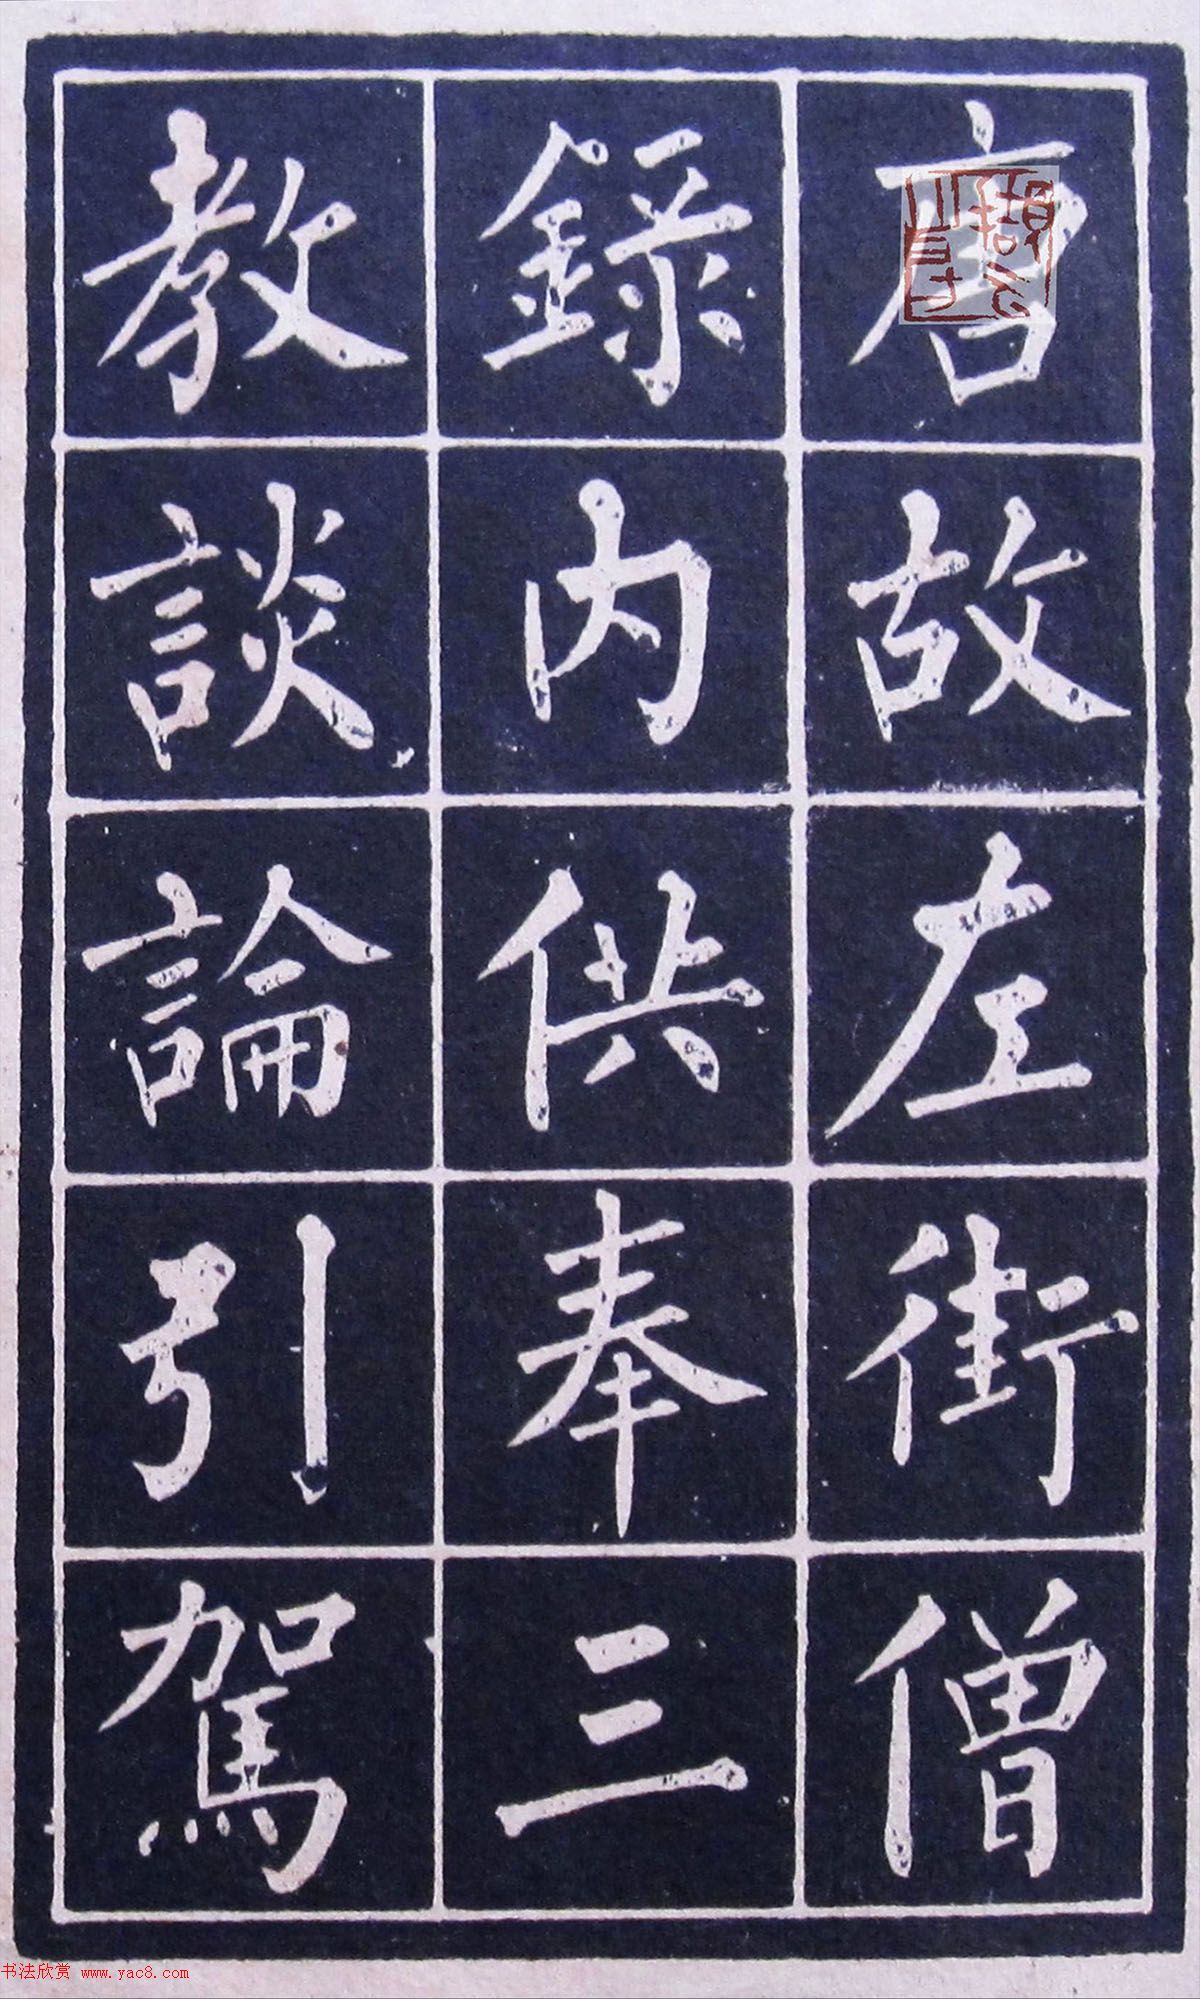 唐故左街僧
錄內供奉三
教談論引駕
书法欣赏 www.yac8.com